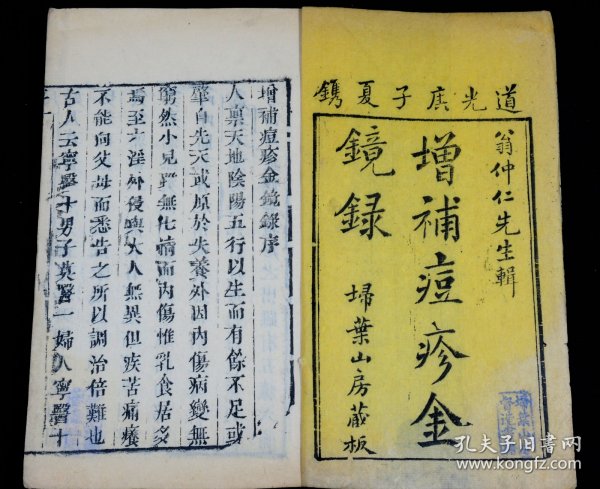 道光庚子夏鐫
翁仲仁先生輯
增補痘疹金
鏡錄
埽葉山房藏板
增補痘疹金鏡錄序
人稟天地陰陽五行以生而有餘不足或
肇自先天或原於失養外因內傷病變無
窮然小兒野無七情而內傷惟乳食居多
焉至六淫外侵與大人無異但疾苦痛癢
不能向父母而悉告之所以調治倍難也
古人云寧醫十男子莫醫一婦人寧醫十
孔夫子旧書网
www.kongfz.com